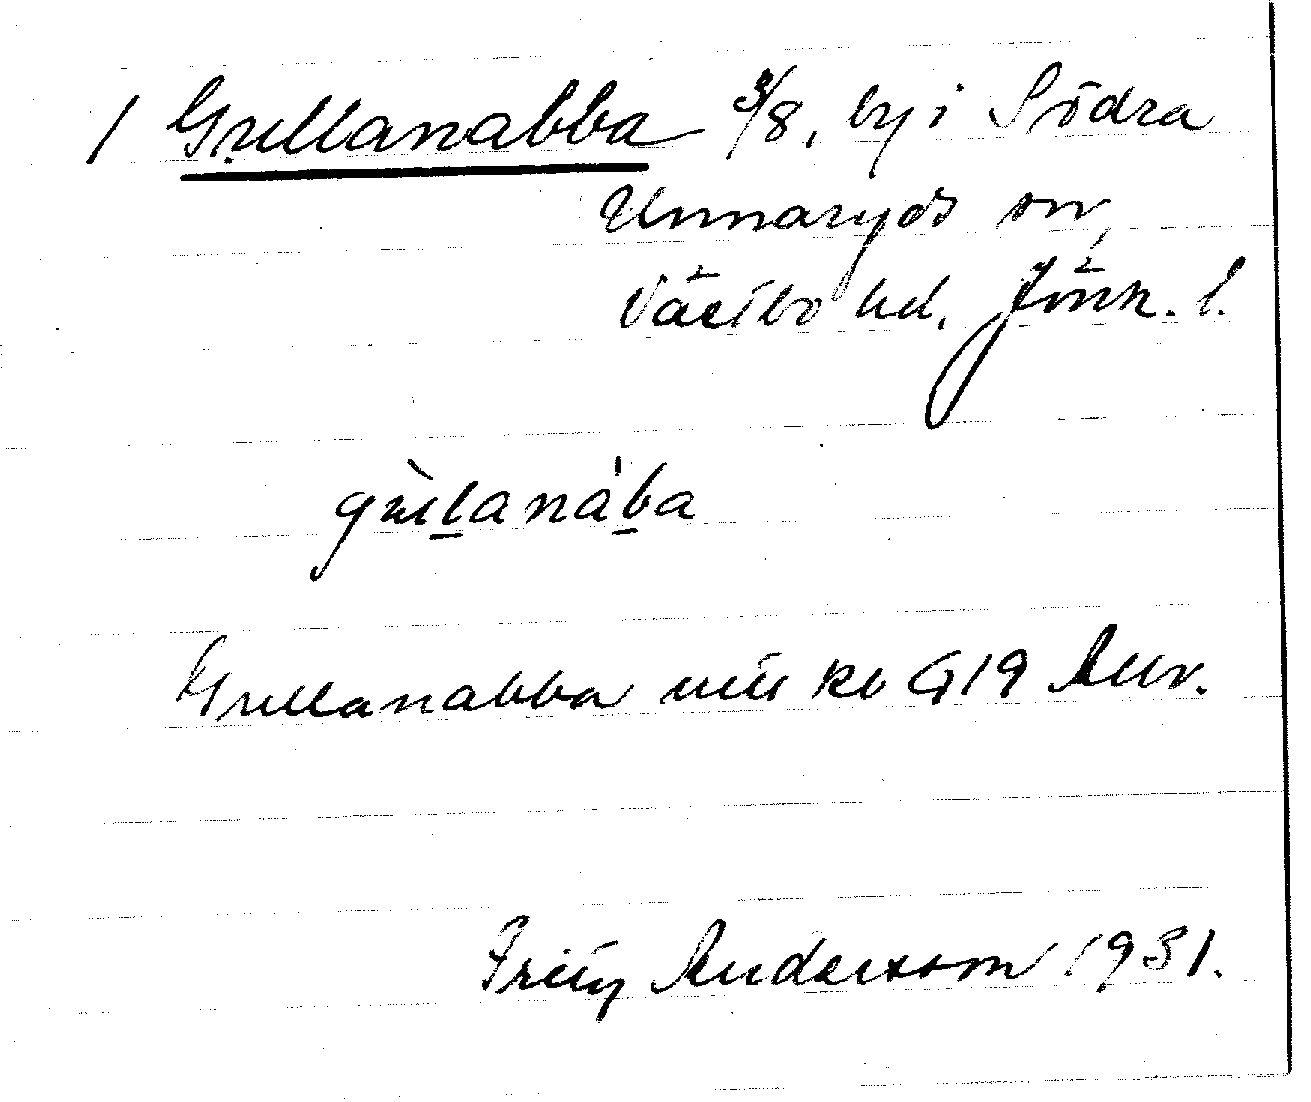 1 Gullanabba 3/8, by i Södra
Unnaryds sn,
Västbo hd. Jönk. l.
gùlanába
Gullanabba utt kb G19 Allv.
Fritz Anderson 1931.